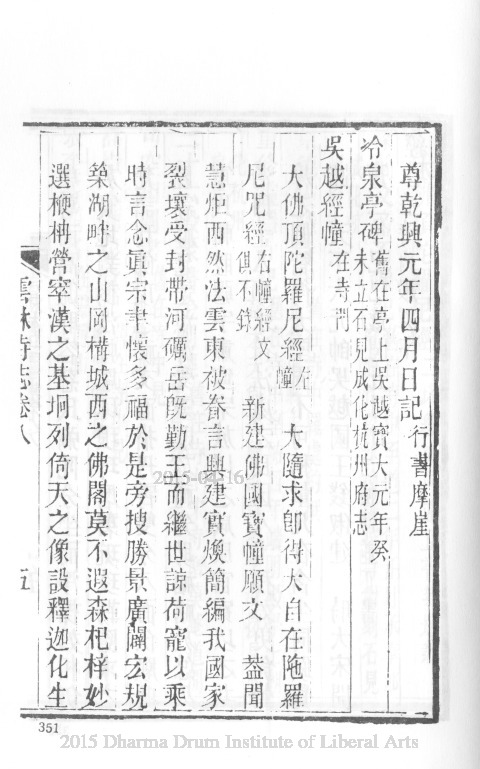 尊乾興元年四月日記行書摩崖
冷泉亭碑舊在亭上吳越寶大元年癸
未立石見成化杭州府志
吳越經幢在寺門
大佛頂陀羅尼經左幢 大隨求卽得大自在陁羅
尼咒經右幢經文俱不錄 新建佛國寶幢願文 葢聞
慧炬西然法雲東被眷言興建實煥簡編我國家
裂壤受封帶河礪岳旣勤王而繼世諒荷寵以乘
時言念眞宗聿懷多福於是旁搜勝景廣闢宏規
築湖畔之山岡構城西之佛閣莫不遐森杞梓妙
選楩枏營宰漢之基坰列倚天之像設釋迦化生
雲林寺志卷八 五
351
2015-03-16
2015 Dharma Drum Institute of Liberal Arts